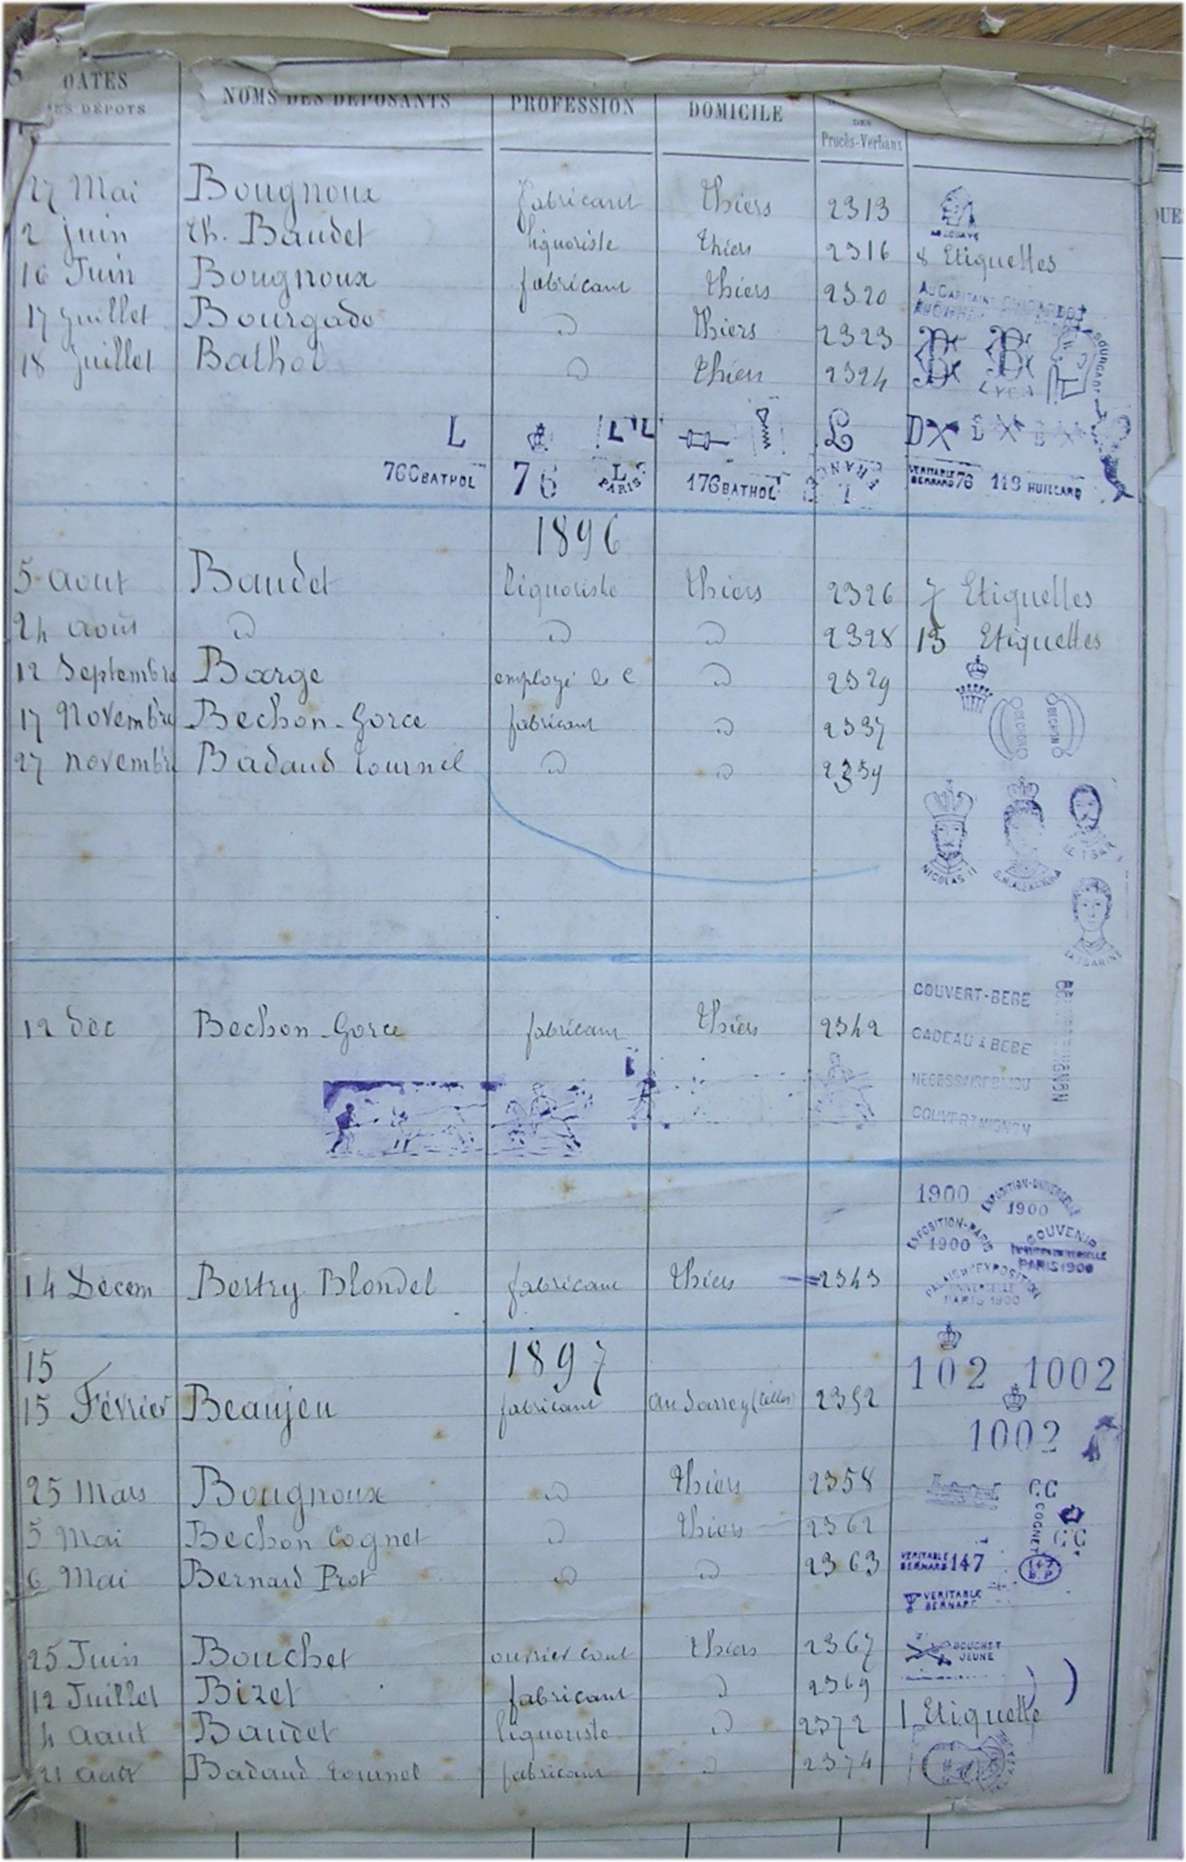 DATES NOMS DES DEPOSANTS PROFESSION DOMICILE
DES DÉPOTS DES Procès-Verbaux
27 Mai Bougnoux fabricant Thiers 2313
2 juin Ch. Baudet liquoriste Thiers 2316 8 Etiquettes
16 Juin Bougnoux fabricant Thiers 2320 AU CAPITAINE
17 Juillet Bourgade Thiers 2323
18 Juillet Bathol Thiers 2324 LYON
L L'L L D
76C BATHOL 76 L PARIS 176 BATHOL VERITABLE BERNARD 76 113 HUILLARD
1896
5 aout Baudet liquoriste Thiers 2326 7 Etiquettes
24 août 2328 15 Etiquettes
12 Septembre Barge employé de C 2329
17 Novembre Bechon-Gorce fabricant 2337 BECHON
27 novembre Badaud Tournel 2339
NICOLAS II
LA TSARINE
COUVERT-BEBE
12 dec Bechon-Gorce fabricant Thiers 2342 CADEAU A BEBE
NECESSAIRE BIJOU
COUVERT MIGNON
1900 EXPOSITION-UNIVERSELLE 1900
EXPOSITION-PARIS 1900 SOUVENIR PARIS 1900
14 Décem Bertry Blondel fabricant Thiers 2343 EXPOSITION UNIVERSELLE PARIS 1900
15 1897 102 1002
15 Février Beaujeu fabricant 2352
1002
25 Mars Bougnoux Thiers 2358 CC
5 Mai Bechon Cognet Thiers 2362 COGNET
6 Mai Bernard Prot 2363 VERITABLE BERNARD 147
VERITABLE BERNARD
25 Juin Bouchet ouvrier cout Thiers 2367 BOUCHET JEUNE
12 Juillet Bizet fabricant 2369
4 aout Baudet liquoriste 2372 1 Etiquette
21 aout Badaud Tournel fabricant 2374